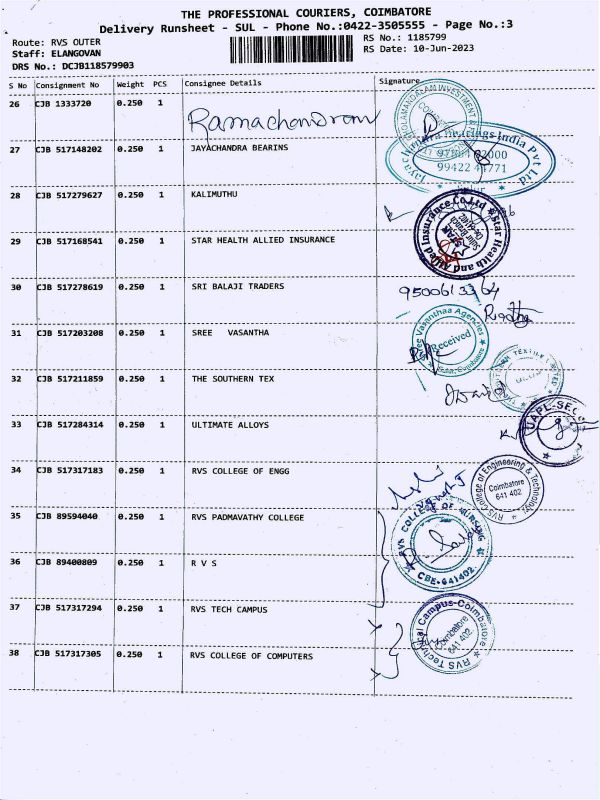 THE PROFESSIONAL COURIERS, COIMBATORE
Delivery Runsheet - SUL - Phone No.:0422-3505555 - Page No.:3
Route: RVS OUTER
Staff: ELANGOVAN
DRS No.: DCJB118579903
RS No.: 1185799
RS Date: 10-Jun-2023
S No Consignment No Weight PCS Consignee Details Signature
26 CJB 1333720 0.250 1 Ramachandran
27 CJB 517148202 0.250 1 JAYACHANDRA BEARINS
28 CJB 517279627 0.250 1 KALIMUTHU
29 CJB 517168541 0.250 1 STAR HEALTH ALLIED INSURANCE
30 CJB 517278619 0.250 1 SRI BALAJI TRADERS
31 CJB 517203208 0.250 1 SREE VASANTHA
32 CJB 517211859 0.250 1 THE SOUTHERN TEX
33 CJB 517284314 0.250 1 ULTIMATE ALLOYS
34 CJB 517317183 0.250 1 RVS COLLEGE OF ENGG
35 CJB 89594040 0.250 1 RVS PADMAVATHY COLLEGE
36 CJB 89400809 0.250 1 R V S
37 CJB 517317294 0.250 1 RVS TECH CAMPUS
38 CJB 517317305 0.250 1 RVS COLLEGE OF COMPUTERS
INVESTMENT
India Pvt Ltd
99422
Star Health and Allied Insurance Co Ltd
STAR
9500613364
Sree Vasanthaa Agencies
Received
UAPL-SEC
RVS College of Engineering & Technology
Coimbatore
641 402
RVS COLLEGE OF NURSING
CBE-641402
RVS Technical Campus-Coimbatore
Coimbatore
641 402